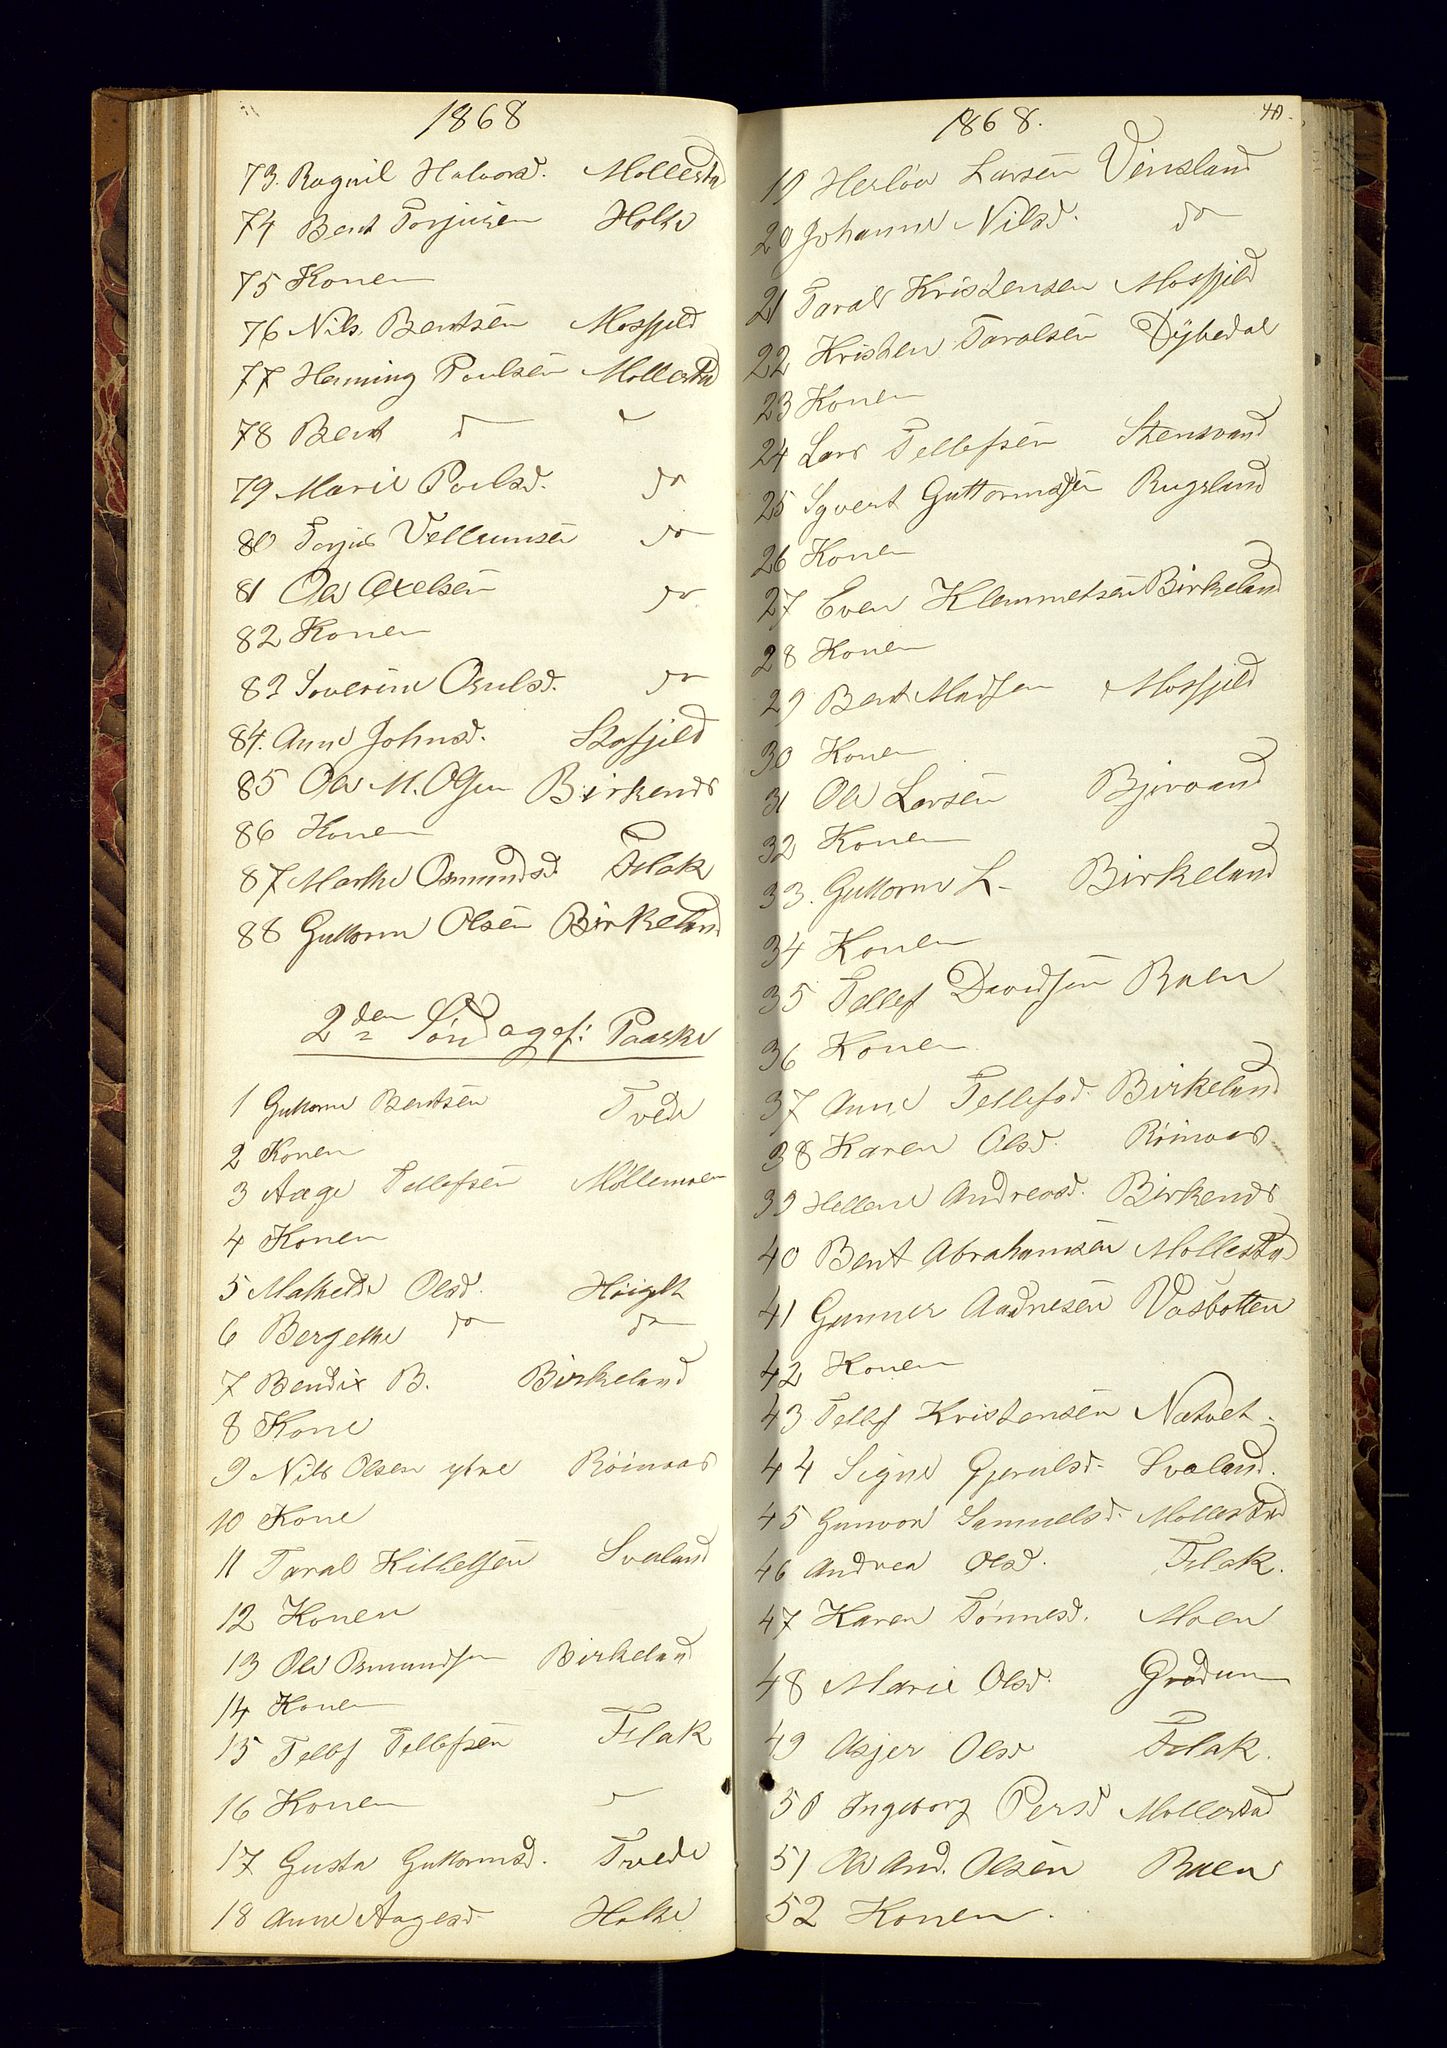 1868
73. Ragnil Halvorsd. Mollestad
74 Bent Torjusen Holte
75 Konen
76 Nils Bentsen Mosfjeld
77 Henning Poulsen Mollestad
78 Bent do do
79 Marie Poulsd. do
80 Torjus Vellumsen do
81 Ole Axelsen do
82 Konen
83 Severine Osulsd. do
84. Anne Johnsd. Skofjeld
85 Ole M. Olsen Birkenes
86 Konen
87 Marthe Osmundsd. Flak
88 Guttorm Olsen Birkeland
2den Søndag ef: Paaske
1 Guttorm Bentsen Tvede
2 Konen
3 Aage Tellefsen Møllemoen
4 Konen
5 Mathilde Olsd. Høigilt
6 Bergethe do do
7 Bendix B. Birkeland
8 Kone
9 Nils Olsen ytre Røinaas
10 Kone
11 Taral Killelsen Svaland
12 Konen
13 Ole Osmundsen Birkeland
14 Konen
15 Tellef Tellefsen Flak
16 Konen do
17 Gusta Guttormsd. Tvede
18 Anne Aagesd. Holte
1868. 40.
19 Herløv Larsen Vinsland
20 Johanne Nilsd. do
21 Taral Kristensen Mosfjeld
22 Kristen Taralsen Dybedal
23 Konen
24 Lars Tellefsen Stensvand
25 Syvert Guttormsen Rugsland
26 Konen
27 Even Klemmetsen Birkeland
28 Konen
29 Bent Madsen Mosfjeld
30 Konen
31 Ole Larsen Bjorvand
32 Konen
33. Guttorm L. Birkeland
34 Konen
35 Tellef Davidsen Roen
36 Konen
37 Anne Tellefsd. Birkeland
38 Karen Olsd. Røinaas
39 Hellene Andreasd. Birkenes
40 Bent Abrahamsen Mollestad
41 Gunner Aadnesen Vasbotten
42 Konen
43 Tellef Kristensen Natvet
44 Signe Gjerulsd. Svaland.
45 Gunvor Samuelsd. Mollestad
46 Andrea Olsd. Flak.
47 Karen Tønnesd. Moen
48 Marie Olsd. Grødum
49 Asjer Olsd Flak.
50 Ingeborg Persd Mollestad
51 Ole And. Olsen Roen
52 Konen.